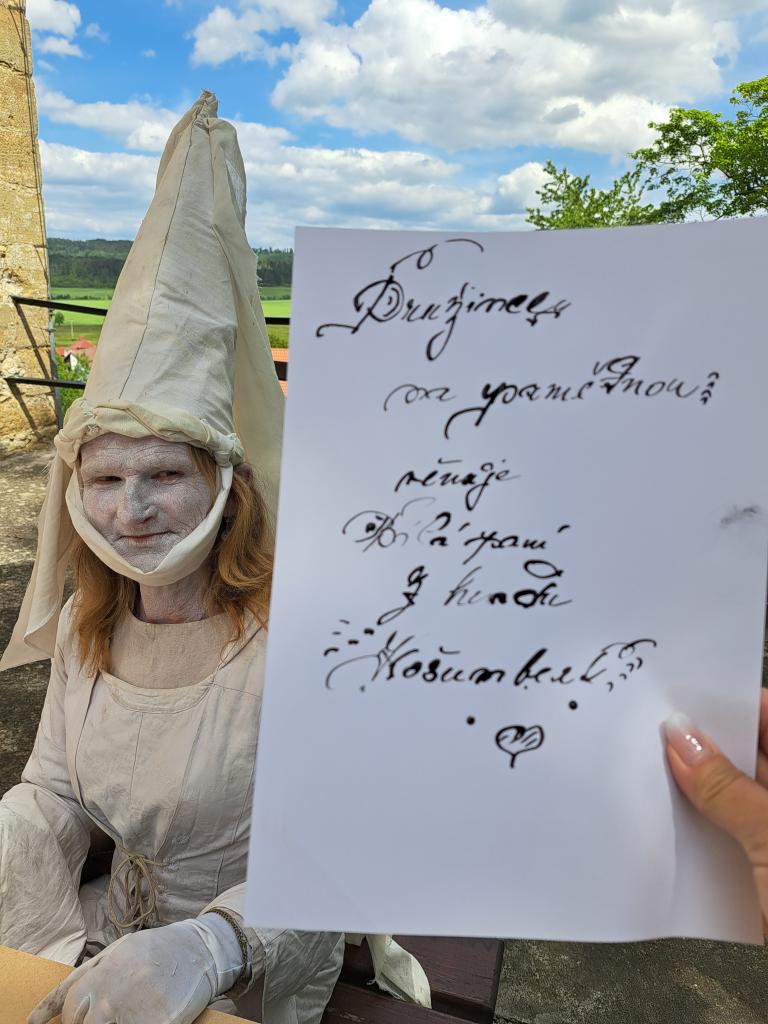 Družince
na památnou
věnuje
Bílá paní
z hradu
Košumberk